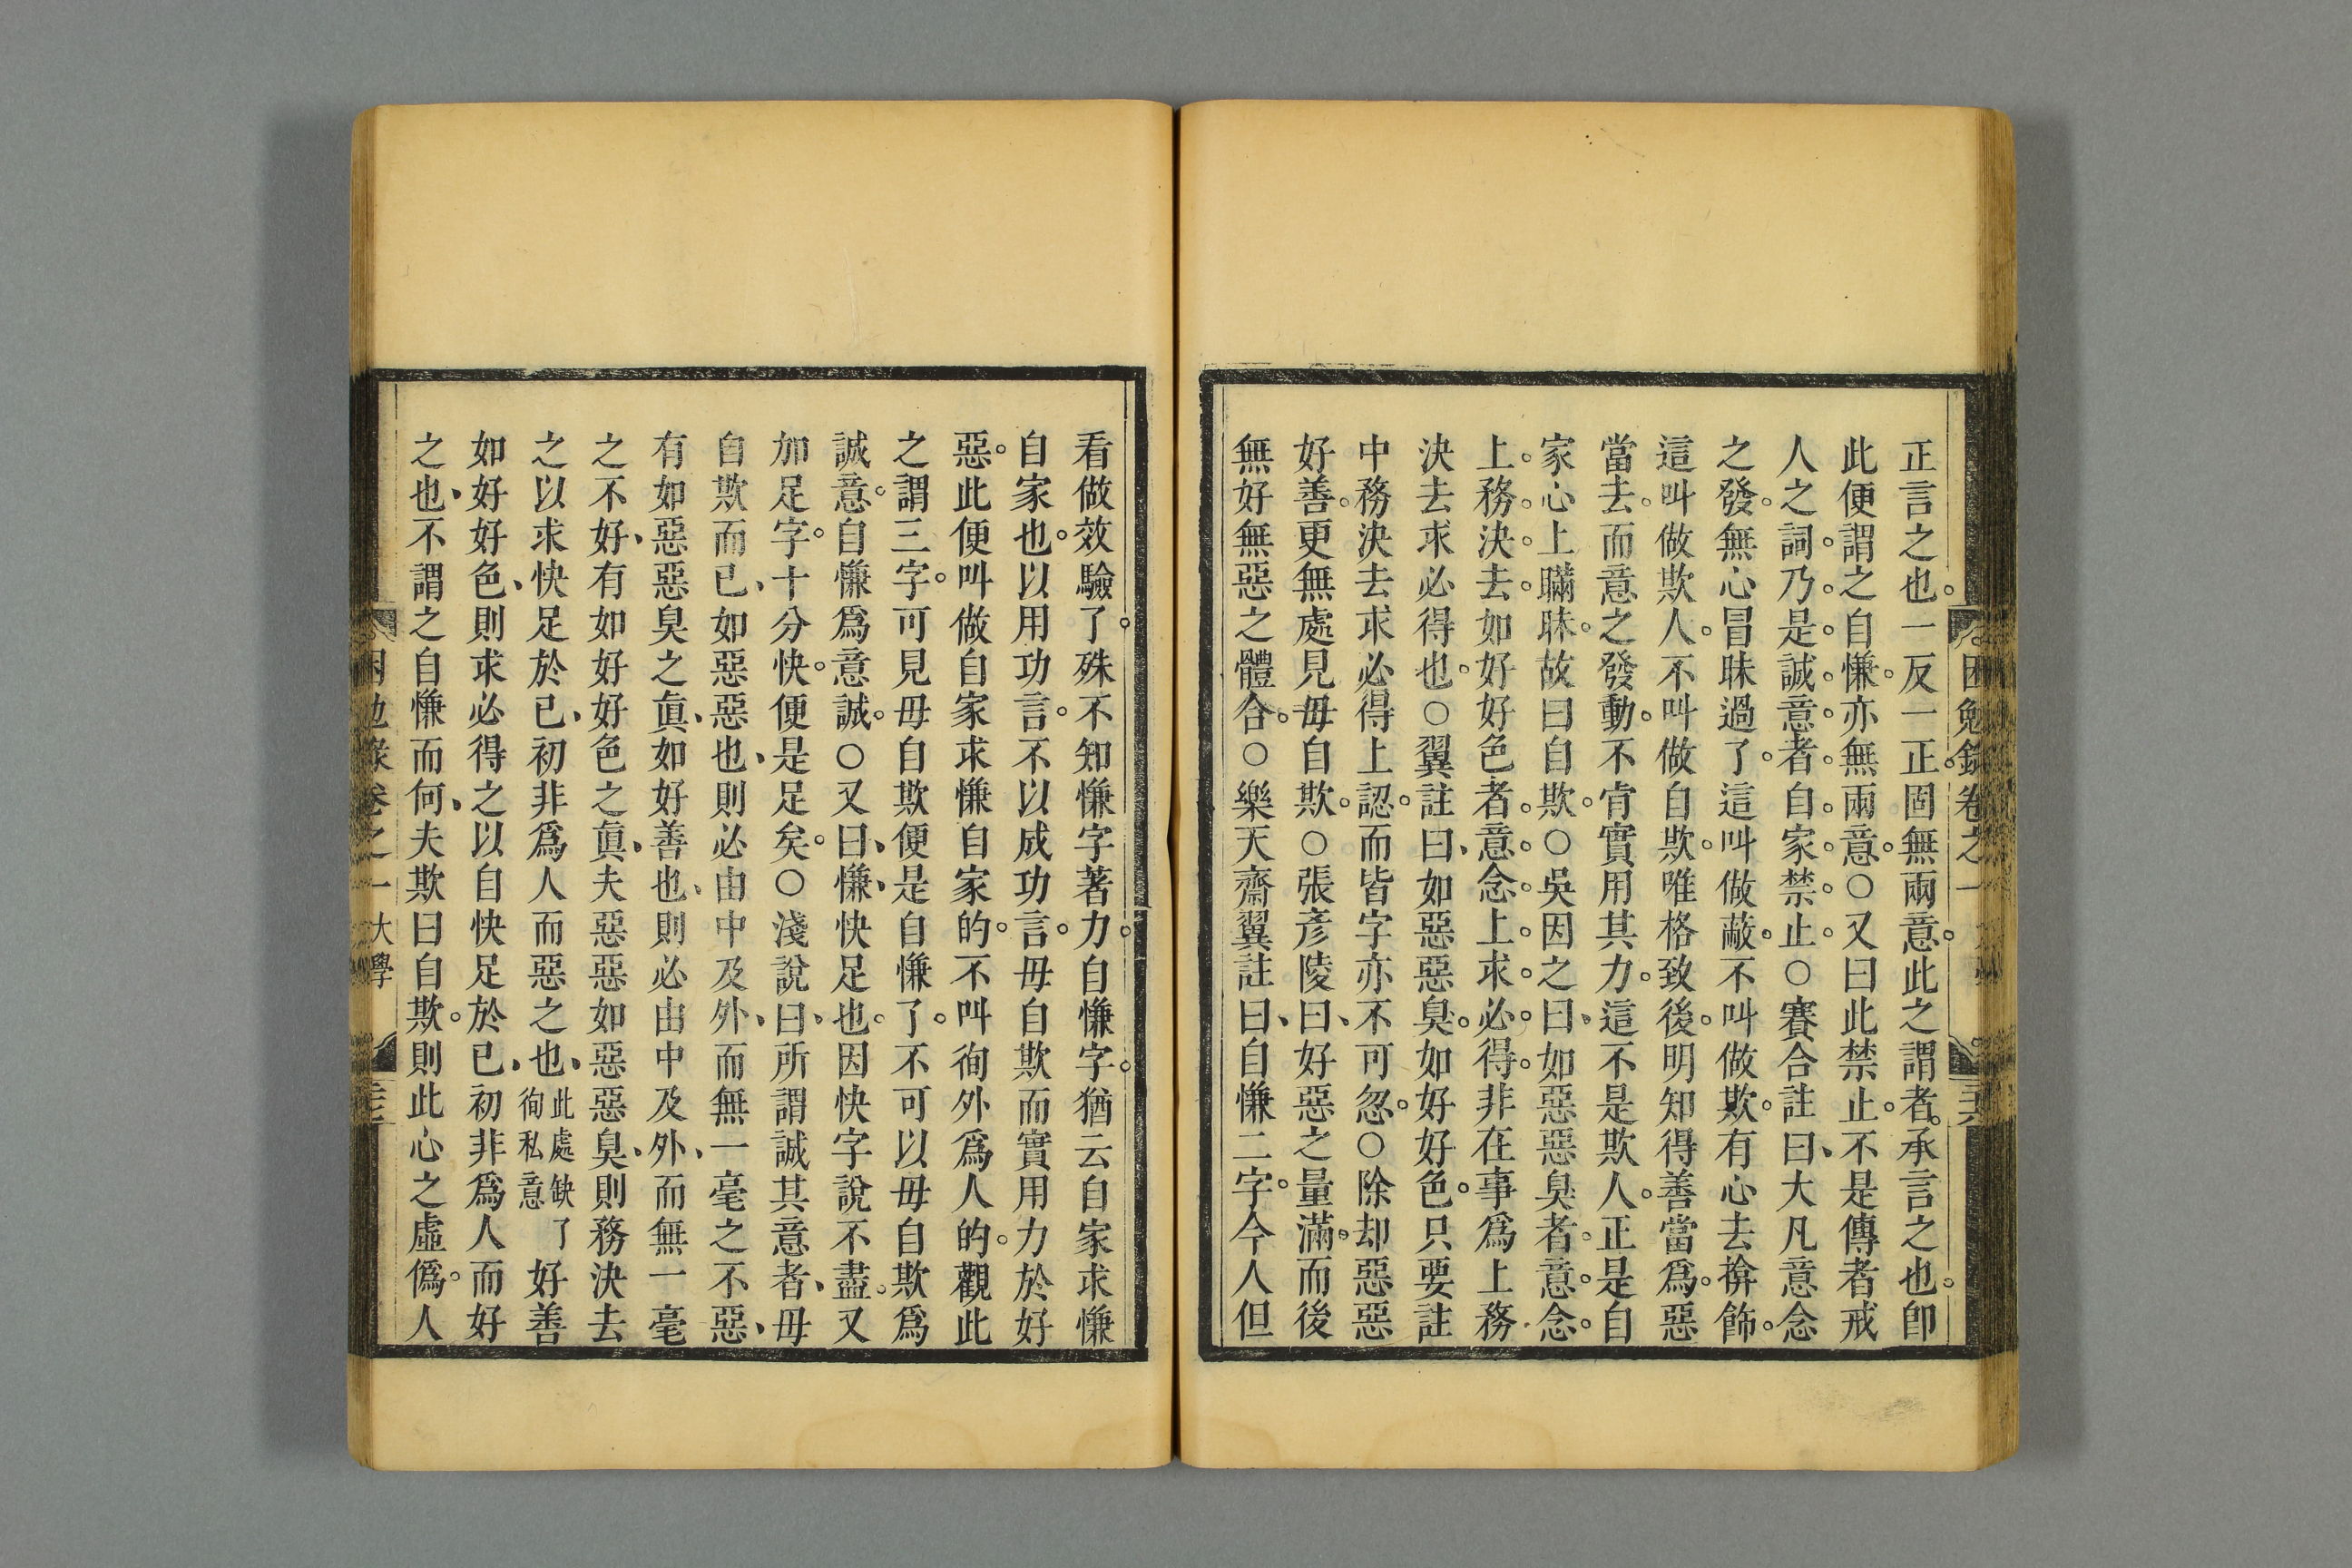 困勉錄卷之一
正言之也。一反一正。固無兩意。此之謂者。承言之也。卽
此便謂之自慊。亦無兩意。○又曰此禁止。不是傳者戒
人之詞。乃是誠意者。自家禁止。○賽合註曰、大凡意念
之發。無心冒昧過了。這叫做蔽。不叫做欺。有心去揜飾。
這叫做欺人。不叫做自欺。唯格致後。明知得善當爲。惡
當去。而意之發動。不肯實用其力。這不是欺人。正是自
家心上瞞昧。故曰自欺。○吳因之曰、如惡惡臭者。意念
上。務決去。如好好色者。意念上。求必得。非在事爲上務
決去求必得也。○翼註曰、如惡惡臭。如好好色。只要註
中務決去求必得上認。而皆字亦不可忽。○除却惡惡
好善。更無處見毋自欺。○張彥陵曰、好惡之量滿。而後
無好無惡之體合。○樂天齋翼註曰、自慊二字。今人但
看做效驗了。殊不知慊字著力。自慊字。猶云自家求慊
自家也。以用功言。不以成功言。毋自欺而實用力於好
惡。此便叫做自家求慊自家的。不叫徇外爲人的。觀此
之謂三字。可見毋自欺便是自慊了。不可以毋自欺爲
誠意。自慊爲意誠。○又曰、慊、快足也。因快字說不盡。又
加足字。十分快。便是足矣。○淺說曰、所謂誠其意者、毋
自欺而已、如惡惡也、則必由中及外、而無一毫之不惡、
有如惡惡臭之眞、如好善也、則必由中及外、而無一毫
之不好、有如好好色之眞、夫惡惡如惡惡臭、則務決去
之以求快足於已、初非爲人而惡之也、此處缺了徇私意好善
如好好色、則求必得之以自快足於已、初非爲人而好
之也、不謂之自慊而何、夫欺曰自欺。則此心之虛僞。人
大學